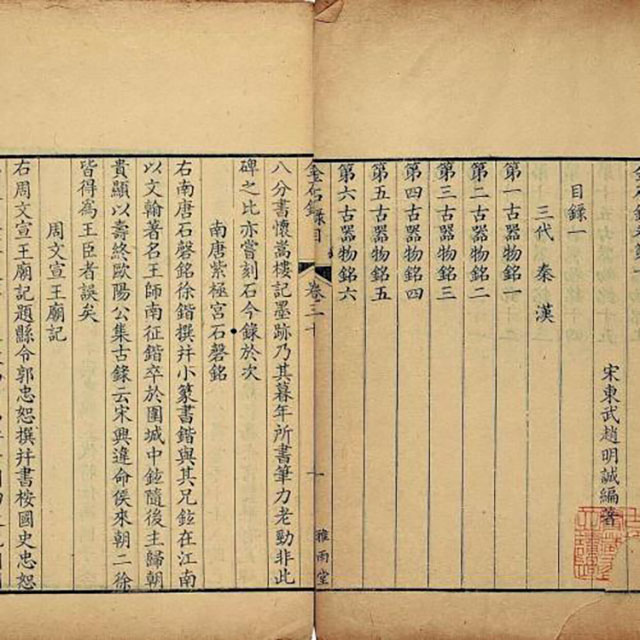 宋東武趙明誠編著
目錄一
三代 秦 漢
第一古器物銘一
第二古器物銘二
第三古器物銘三
第四古器物銘四
第五古器物銘五
第六古器物銘六
金石錄目
卷三十
雅雨堂
八分書懷嵩樓記墨跡乃其暮年所書筆力老勁非此
碑之比亦嘗刻石今錄於次
南唐紫極宮石磬銘
右南唐石磬銘徐鍇撰并小篆書鍇與其兄鉉在江南
以文翰著名王師南征鍇卒於圍城中鉉隨後主歸朝
貴顯以壽終歐陽公集古錄云宋興違命侯來朝二徐
皆得為王臣者誤矣
周文宣王廟記
右周文宣王廟記題縣令郭忠恕撰并書桉國史忠恕